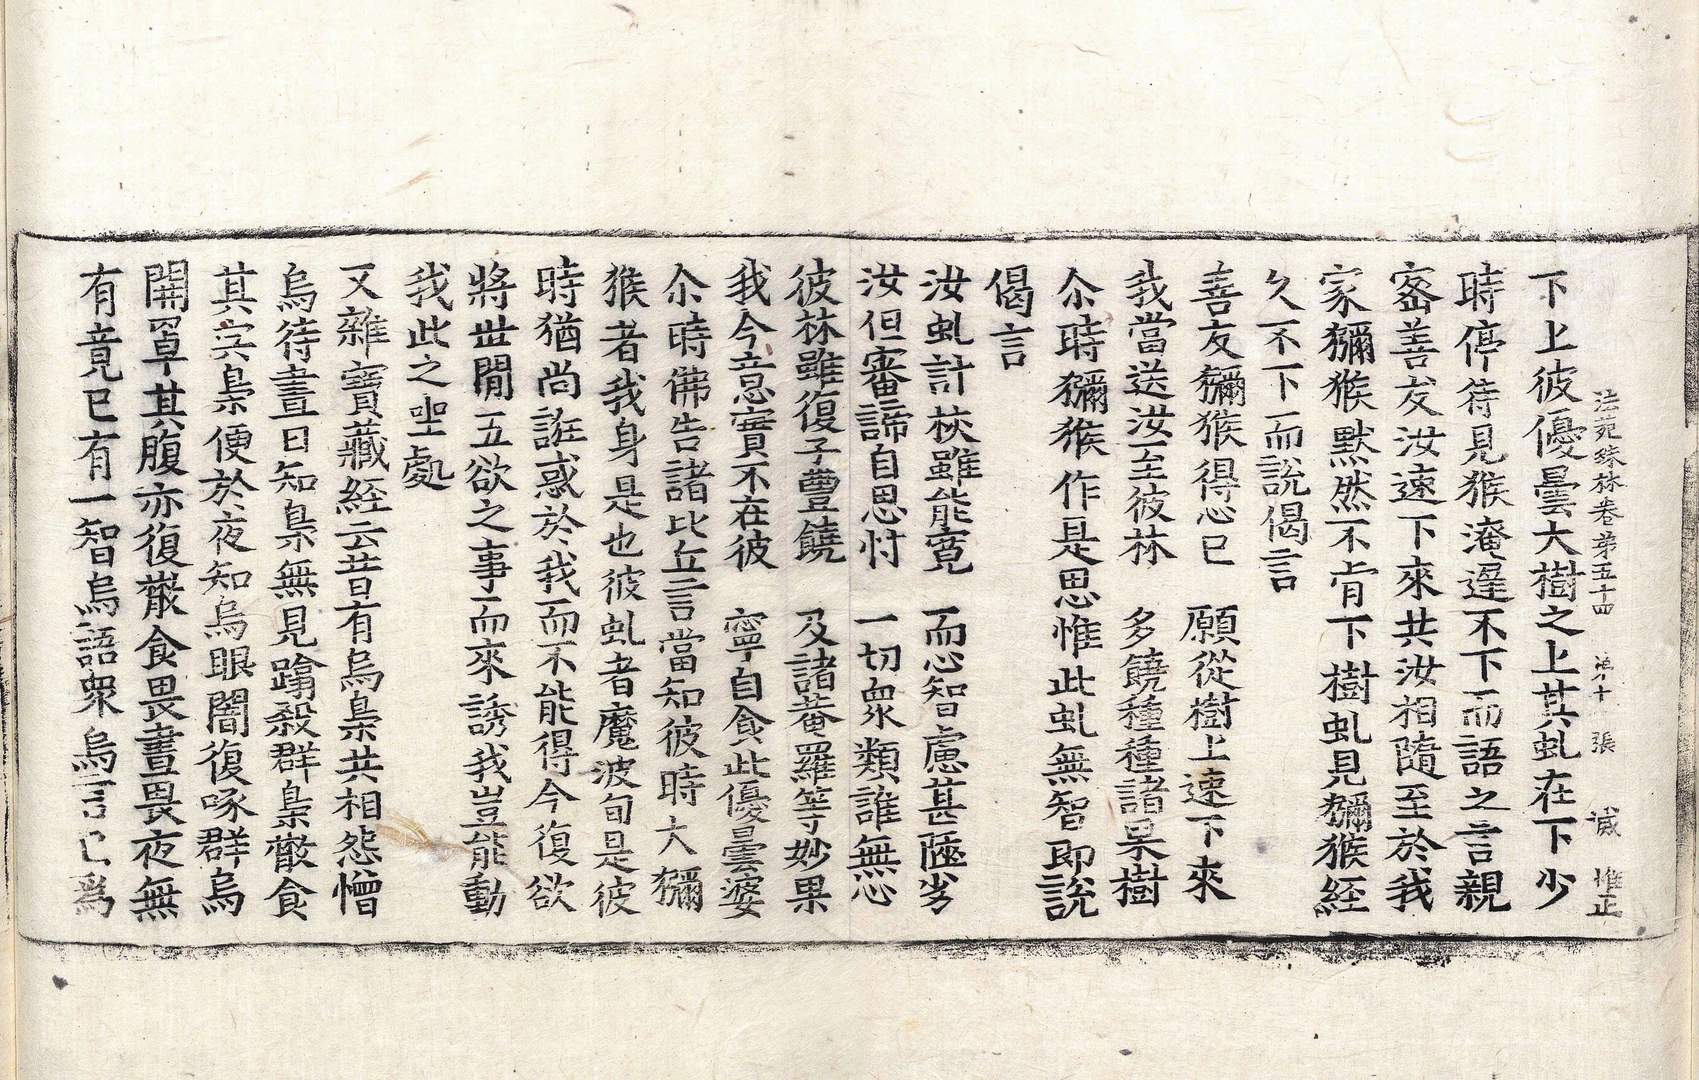 法苑珠林卷第五十四 第十張 誠 惟正
下上彼優曇大樹之上其虬在下少
時停待見猴淹遲不下而語之言親
密善友汝速下來共汝相隨至於我
家獼猴默然不肯下樹虬見獼猴經
久不下而說偈言
善友獼猴得心已 願從樹上速下來
我當送汝至彼林 多饒種種諸果樹
尒時獼猴作是思惟此虬無智即說
偈言
汝虬計挾雖能寬 而心智慮甚陿劣
汝但審諦自思忖 一切衆類誰無心
彼林雖復子豐饒 及諸菴羅等妙果
我今意實不在彼 寧自食此優曇婆
尒時佛告諸比丘言當知彼時大獼
猴者我身是也彼虬者魔波旬是彼
時猶尚誑惑於我而不能得今復欲
將世閒五欲之事而來誘我豈能動
我此之坐處
又雜寶藏經云昔有烏梟共相怨憎
烏待晝日知梟無見蹹殺群梟散食
其宍梟便於夜知烏眼闇復啄群烏
開罩其腹亦復散食畏晝畏夜無
有竟已有一智烏語衆烏言已爲